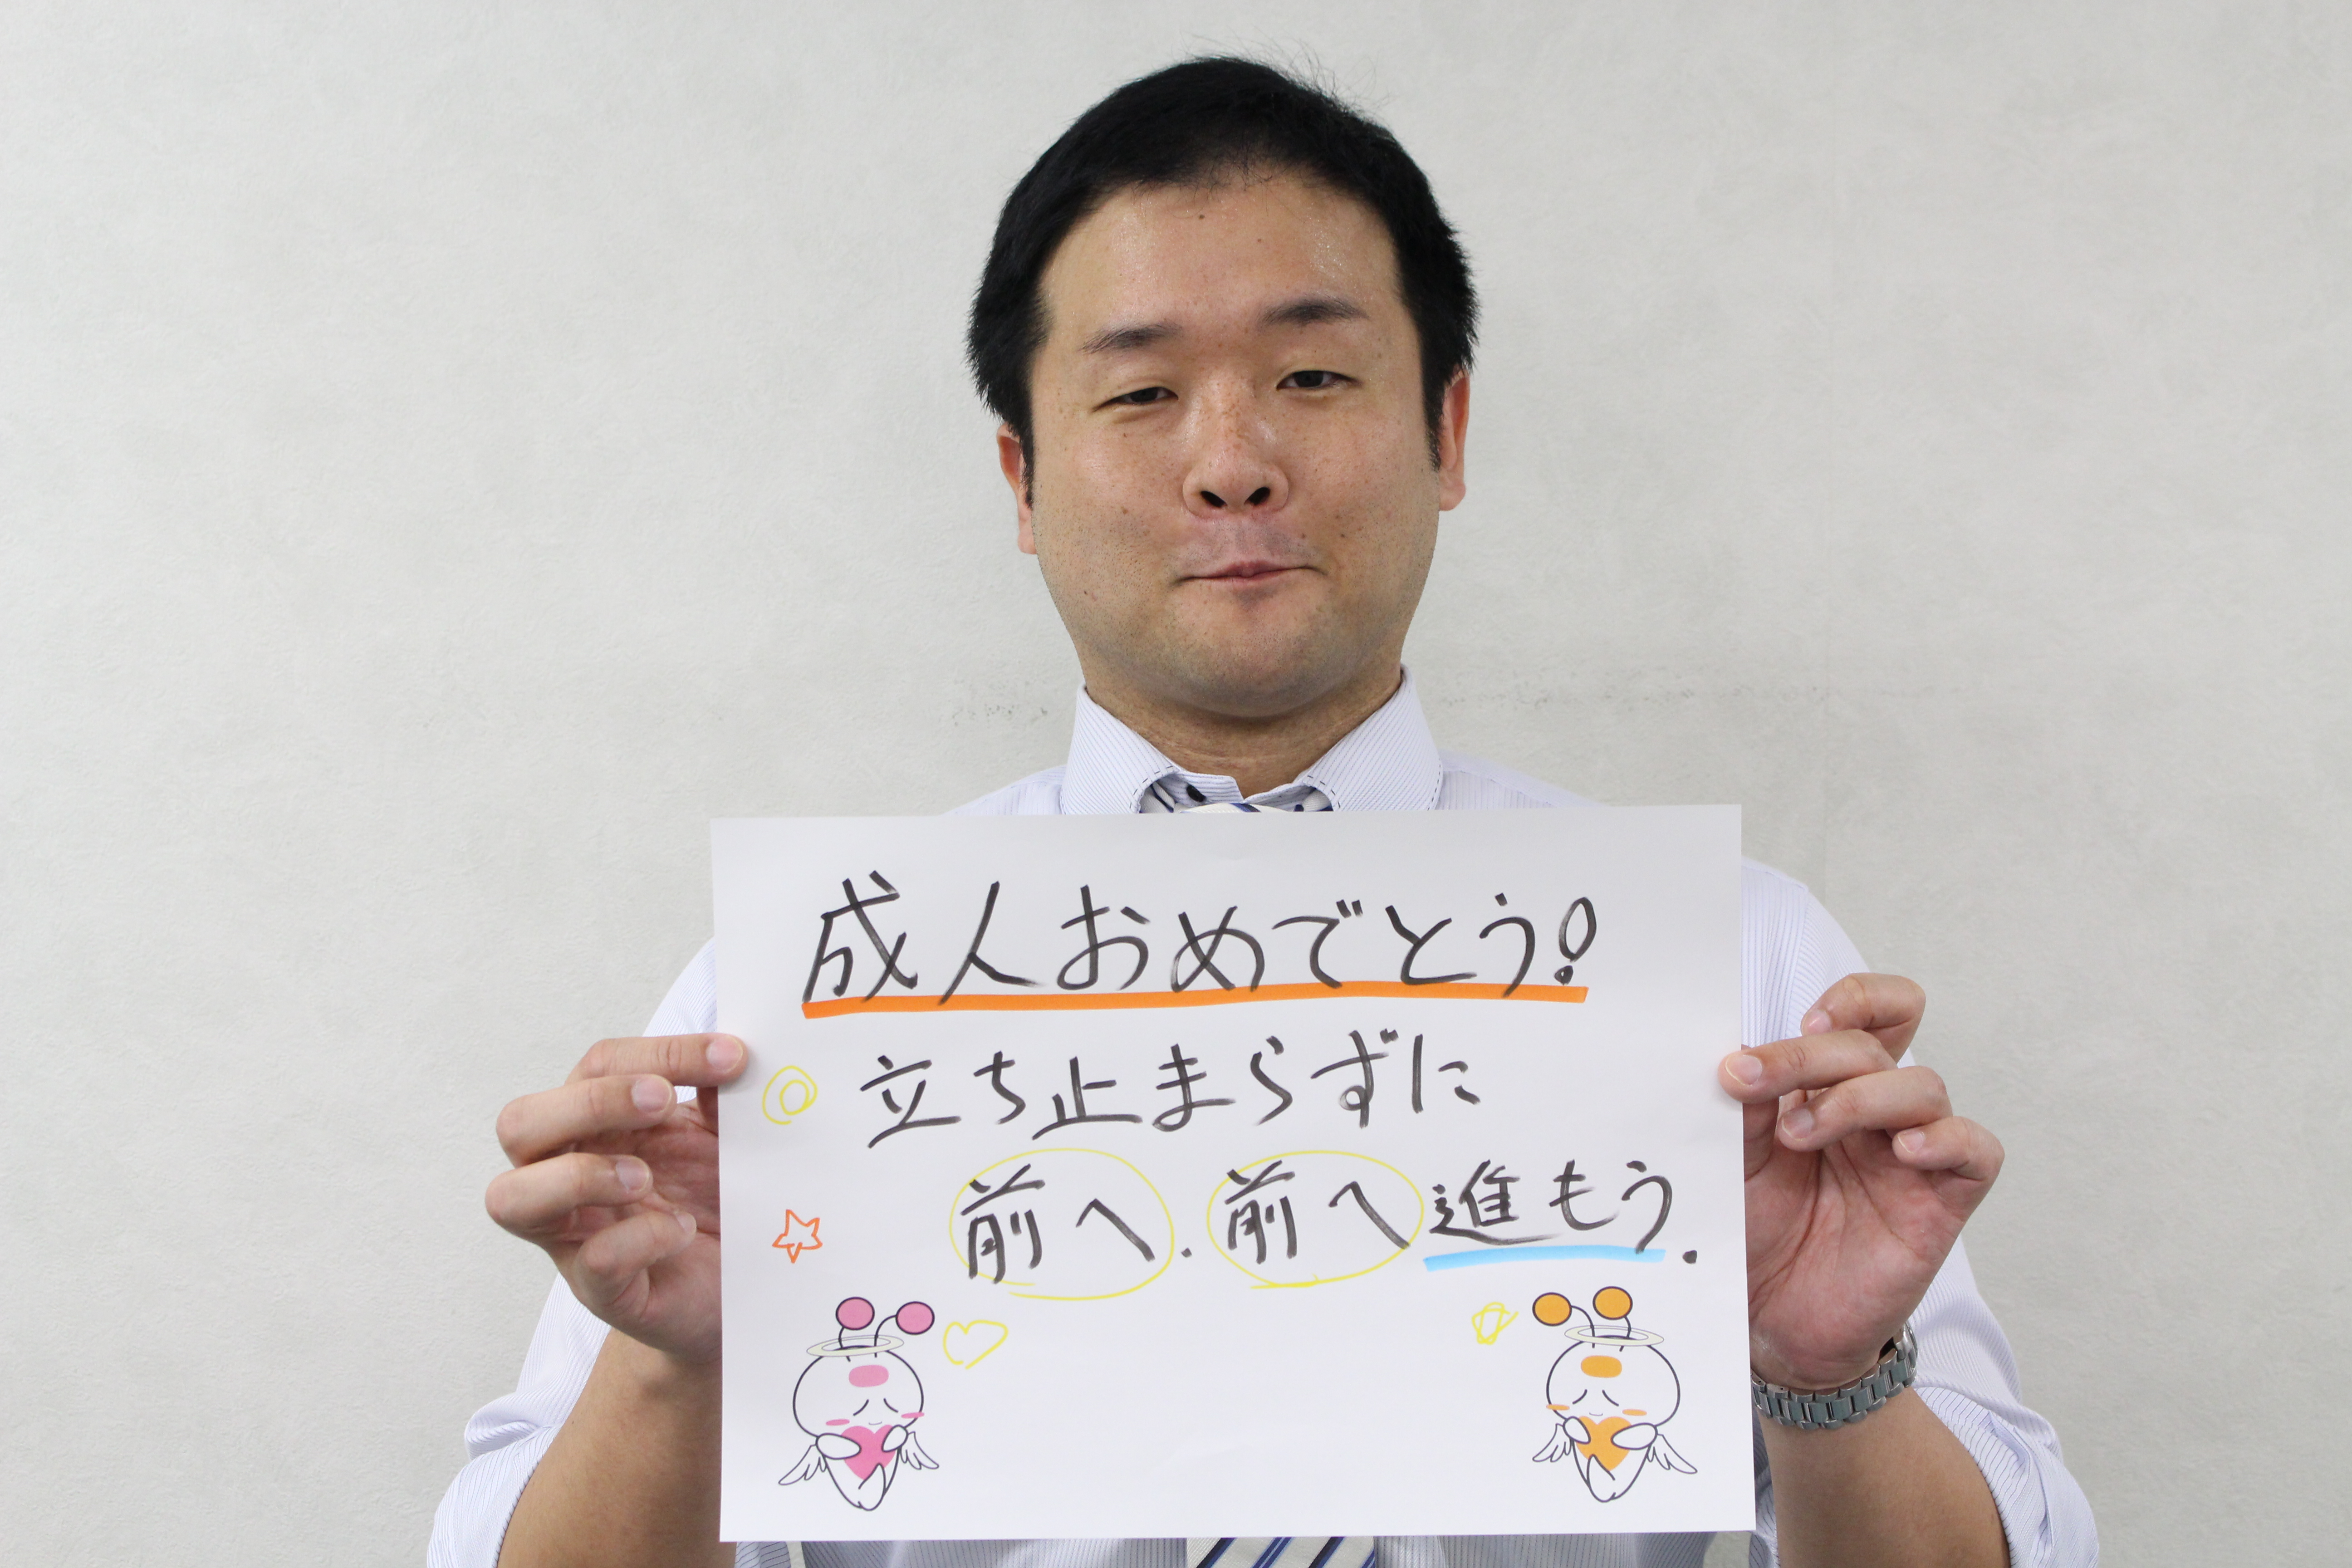 成人おめでとう!
立ち止まらずに
前へ.前へ進もう.